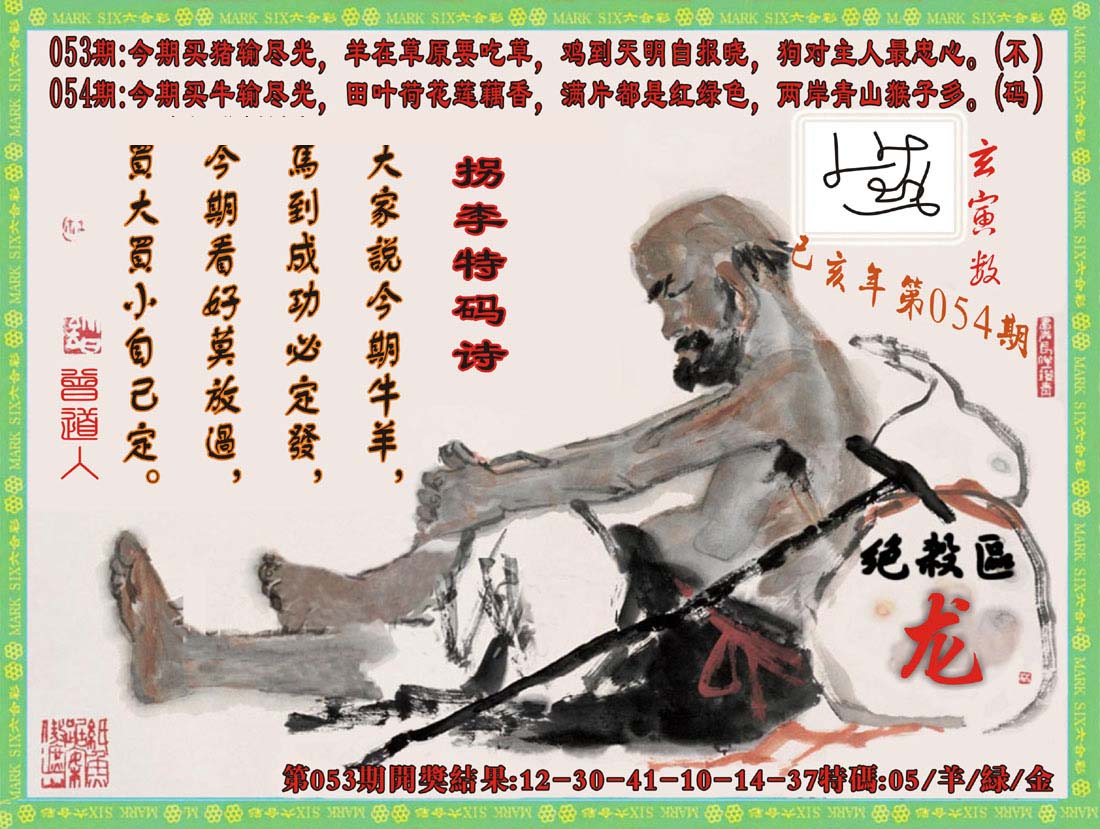 MARK SIX六合彩
053期:今期买猪输尽光，羊在草原要吃草，鸡到天明自报晓，狗对主人最忠心。(不)
054期:今期买牛输尽光，田叶荷花莲藕香，满片都是红绿色，两岸青山猴子多。(码)
玄寅数
己亥年第054期
拐李特码诗
大家說今期牛羊，
馬到成功必定發，
今期看好莫放過，
買大買小自己定。
曾道人
绝殺區
龙
第053期開獎結果:12-30-41-10-14-37特碼:05/羊/緑/金